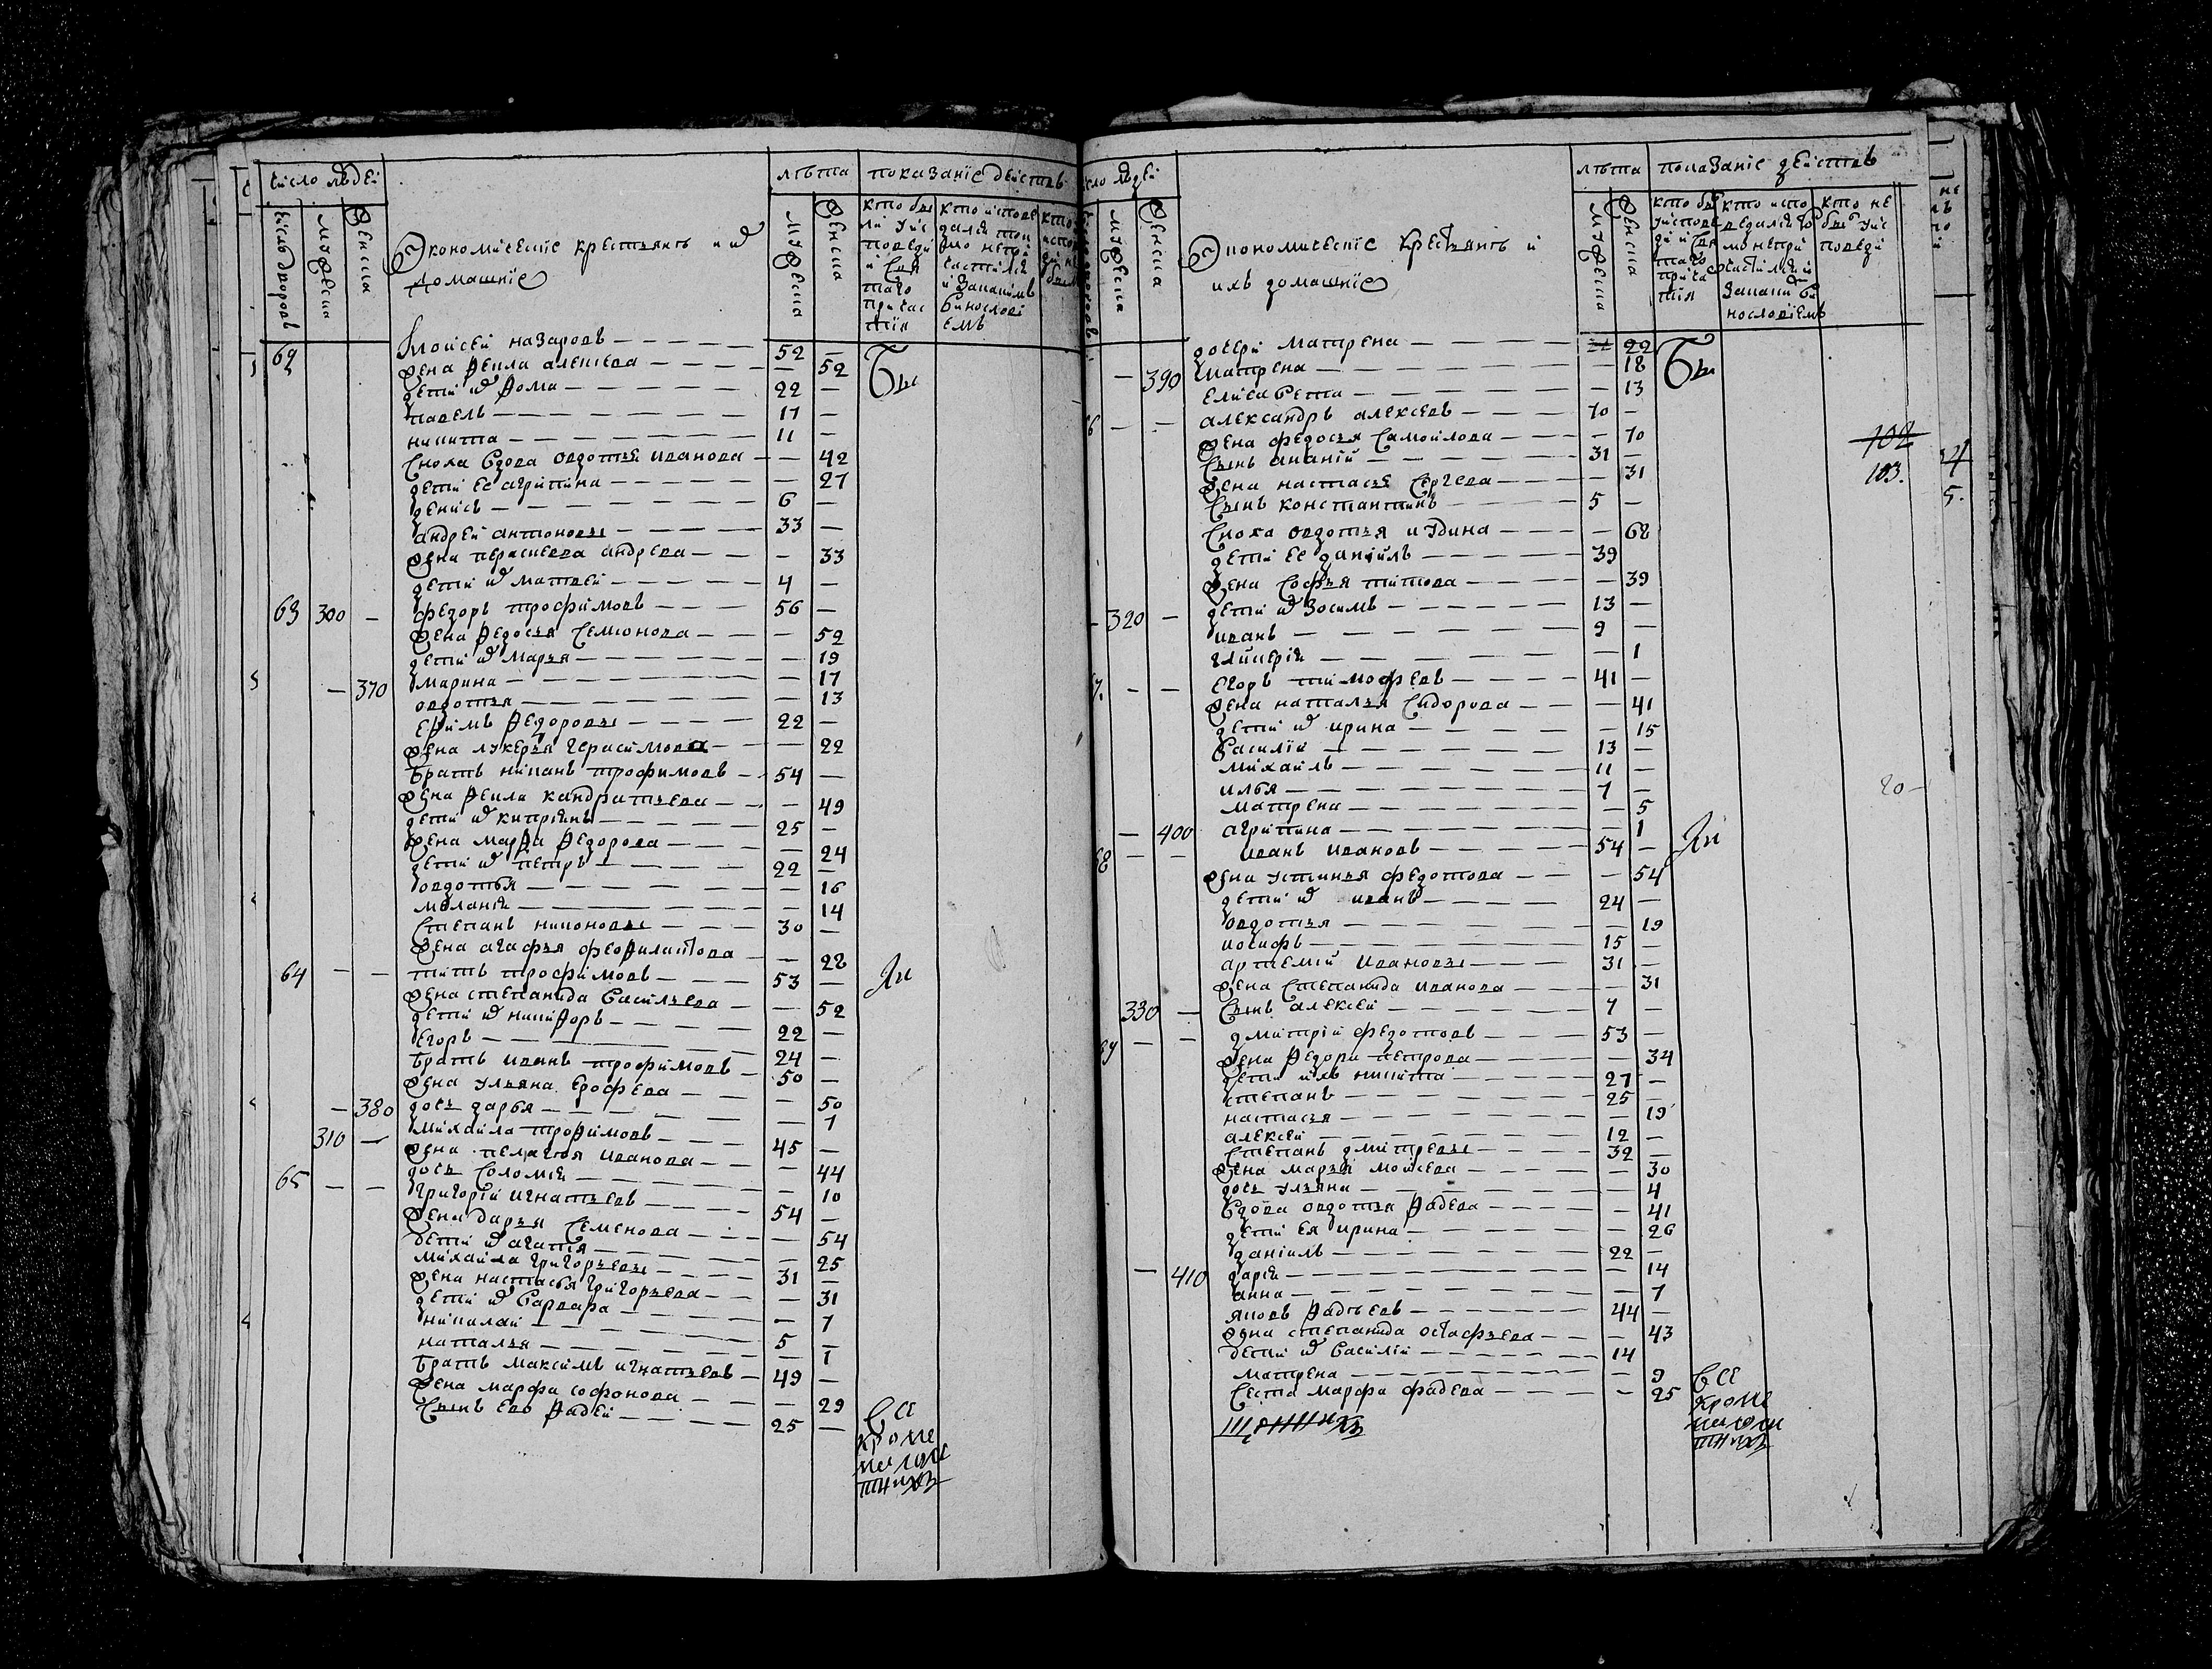 число людей
лѣта
показанїе действ
число дворовъ
мужеска
женска
Экономическïе крестьянѣ и их
домашнïе
мужеска
женска
кто бы
ли у ис
поведи
и свя
таго
причас
тїя
кто испове
дался ток
мо непри
частился
и за каким
винослові
емъ
62 Моисей назаровъ — 52 —
жена фекла алексева — — 52 Бы
дети их фома — 22 —
павелъ — 17 —
никита — 11 —
сноха вдова овдотья иванова — — 42
дети ее агрипина — — 27
денисъ — 6 —
андрей антоновъ — 33 —
жена парасковва андрева — — 33
дети их матвей — 4 —
63 300 — федоръ трофимовъ — 56 —
жена федосья семионова — — 52
дети их марья — — 19
— 370 марина — — 17
овдотья — — 13
ефимъ федоровъ — 22 —
жена лукерья герасимова — — 22
братъ никанъ трофимовъ — 54 —
жена фекла кандратьева — — 49
дети их киприянъ — 25 —
жена марфа федорова — — 24
дети их петръ — 22 —
овдотья — — 16
меланїя — — 14
степанъ никоновъ — 30 —
жена агафья феофилактова — — 28
64 — — титъ трофимовъ — 53 — ли
жена степанида васильева — — 52
дети их никифоръ — 22 —
егоръ — 24 —
братъ иванъ трофимовъ — 50 —
жена ульяна ерофева — — 50
— 380 дочь дарья — — 7
310 — михайла трофимовъ — 45 —
жена пелагея иванова — — 44
дочь соломїя — — 10
65 — — григорїй игнатьевъ — 54 —
жена дарья семенова — — 54
дети их агапия — — 25
михайла григорьевъ — 31 —
жена настасья григорьева — — 31
дети их варвара — — 7
николай — 5 —
наталья — — 1
братъ максимъ игнатьевъ — 49 —
жена марфа софонова — — 29
сынъ ево фадей — 25 —
все
кроме
малоле
тнихъ
число людей
лѣта
показанїе действъ
мужеска
женска
Экономическïе крестьянѣ и
ихъ домашнïе
мужеска
женска
кто бы
у испове
ди и свя
таго
прича
тїя
кто испо
ведался то
мо непри
частился и
за каким ви
нословїемъ
кто не
былъ у ис
поведи
дочери матрена — 22 22
— 390 матрена — — 18 Бы
елисавета — — 13
6 — — александръ алексевъ — 70 —
жена федосья самойлова — — 70
102
сынъ ананїй — 31 —
103.
жена настасья сергева — — 31
5.
сынъ константинъ — 5 —
сноха овдотья иудина — — 68
дети ее данїилъ — 39
жена софья титова — — 39
320 — дети их зосимъ — 13 —
иванъ — 9 —
гликерїя — — 1
7. — — егоръ тимофевъ — 41 —
жена наталья сидорова — — 41
дети их ирина — — 15
василїй — 13 —
михайлъ — 11 —
илья — 7 —
20
матрена — — 5
— 400 агрипина — — 1
68 — — иванъ ивановъ — 54 — ли
жена устинья федотова — — 54
дети их иванъ — 24 —
овдотья — — 19
иосифъ — 15 —
артемїй ивановъ — 31 —
жена степанида иванова — — 31
330 — сынъ алексей — 7 —
69 — — дмитрїй федотовъ — 53 —
жена федора петрова — — 34
дети ихъ никита — 27 —
степанъ — 25 —
настасья — — 19
алексей — 12 —
степанъ дмитревъ — 32 —
жена марья моисева — — 30
дочь ульяна — — 4
вдова овдотья фадева — — 41
дети ея ирина — — 26
данїилъ — 22 —
— 410 дарїя — — 14
анна — — 7
яковъ фадѣевъ — 44 —
жена степанида остафьева — — 43
дети их василїй — 14
матрена — — 9
сестра марфа фадева — — 25
все
кроме
малоле
тнихъ